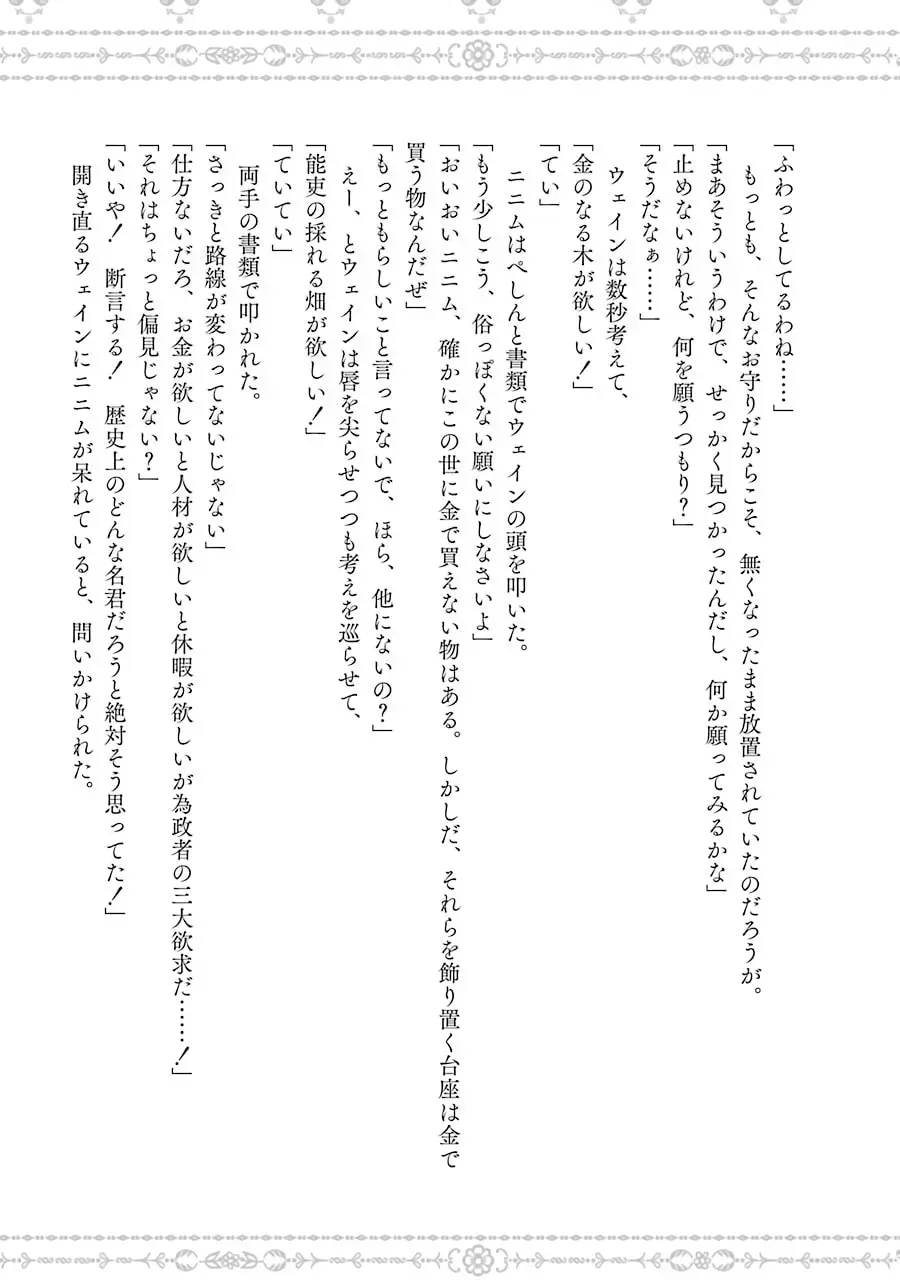 「ふわっとしてるわね……」
　もっとも、そんなお守りだからこそ、無くなったまま放置されていたのだろうが。
「まあそういうわけで、せっかく見つかったんだし、何か願ってみるかな」
「止めないけれど、何を願うつもり？」
「そうだなぁ……」
　ウェインは数秒考えて、
「金のなる木が欲しい！」
「てい」
　ニニムはぺしんと書類でウェインの頭を叩いた。
「もう少しこう、俗っぽくない願いにしなさいよ」
「おいおいニニム、確かにこの世に金で買えない物はある。しかしだ、それらを飾り置く台座は金で
買う物なんだぜ」
「もっともらしいこと言ってないで、ほら、他にないの？」
　えー、とウェインは唇を尖らせつつも考えを巡らせて、
「能吏の採れる畑が欲しい！」
「ていてい」
　両手の書類で叩かれた。
「さっきと路線が変わってないじゃない」
「仕方ないだろ、お金が欲しいと人材が欲しいと休暇が欲しいが為政者の三大欲求だ……！」
「それはちょっと偏見じゃない？」
「いいや！　断言する！　歴史上のどんな名君だろうと絶対そう思ってた！」
　開き直るウェインにニニムが呆れていると、問いかけられた。